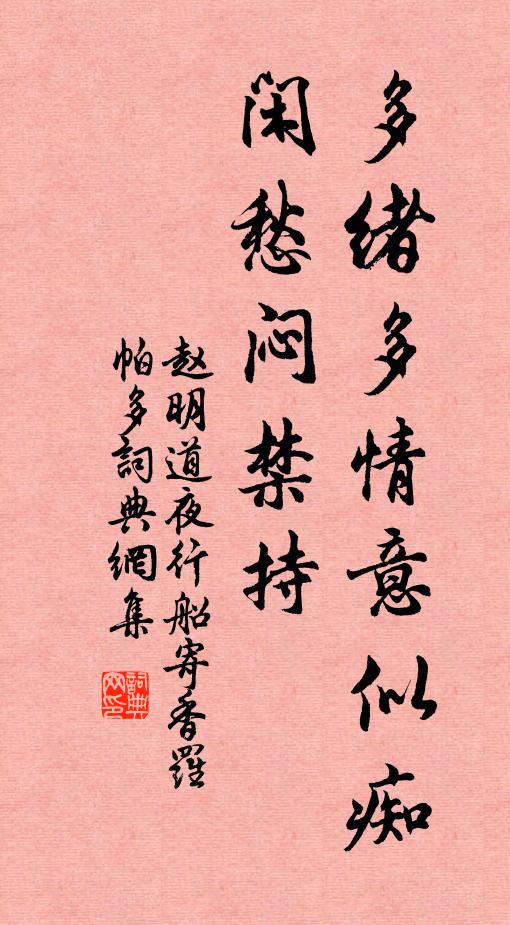 多绪多情意似痴
闲愁闷禁持
赵明道夜行船寄香罗
帕多詞典網集
詞典
网印